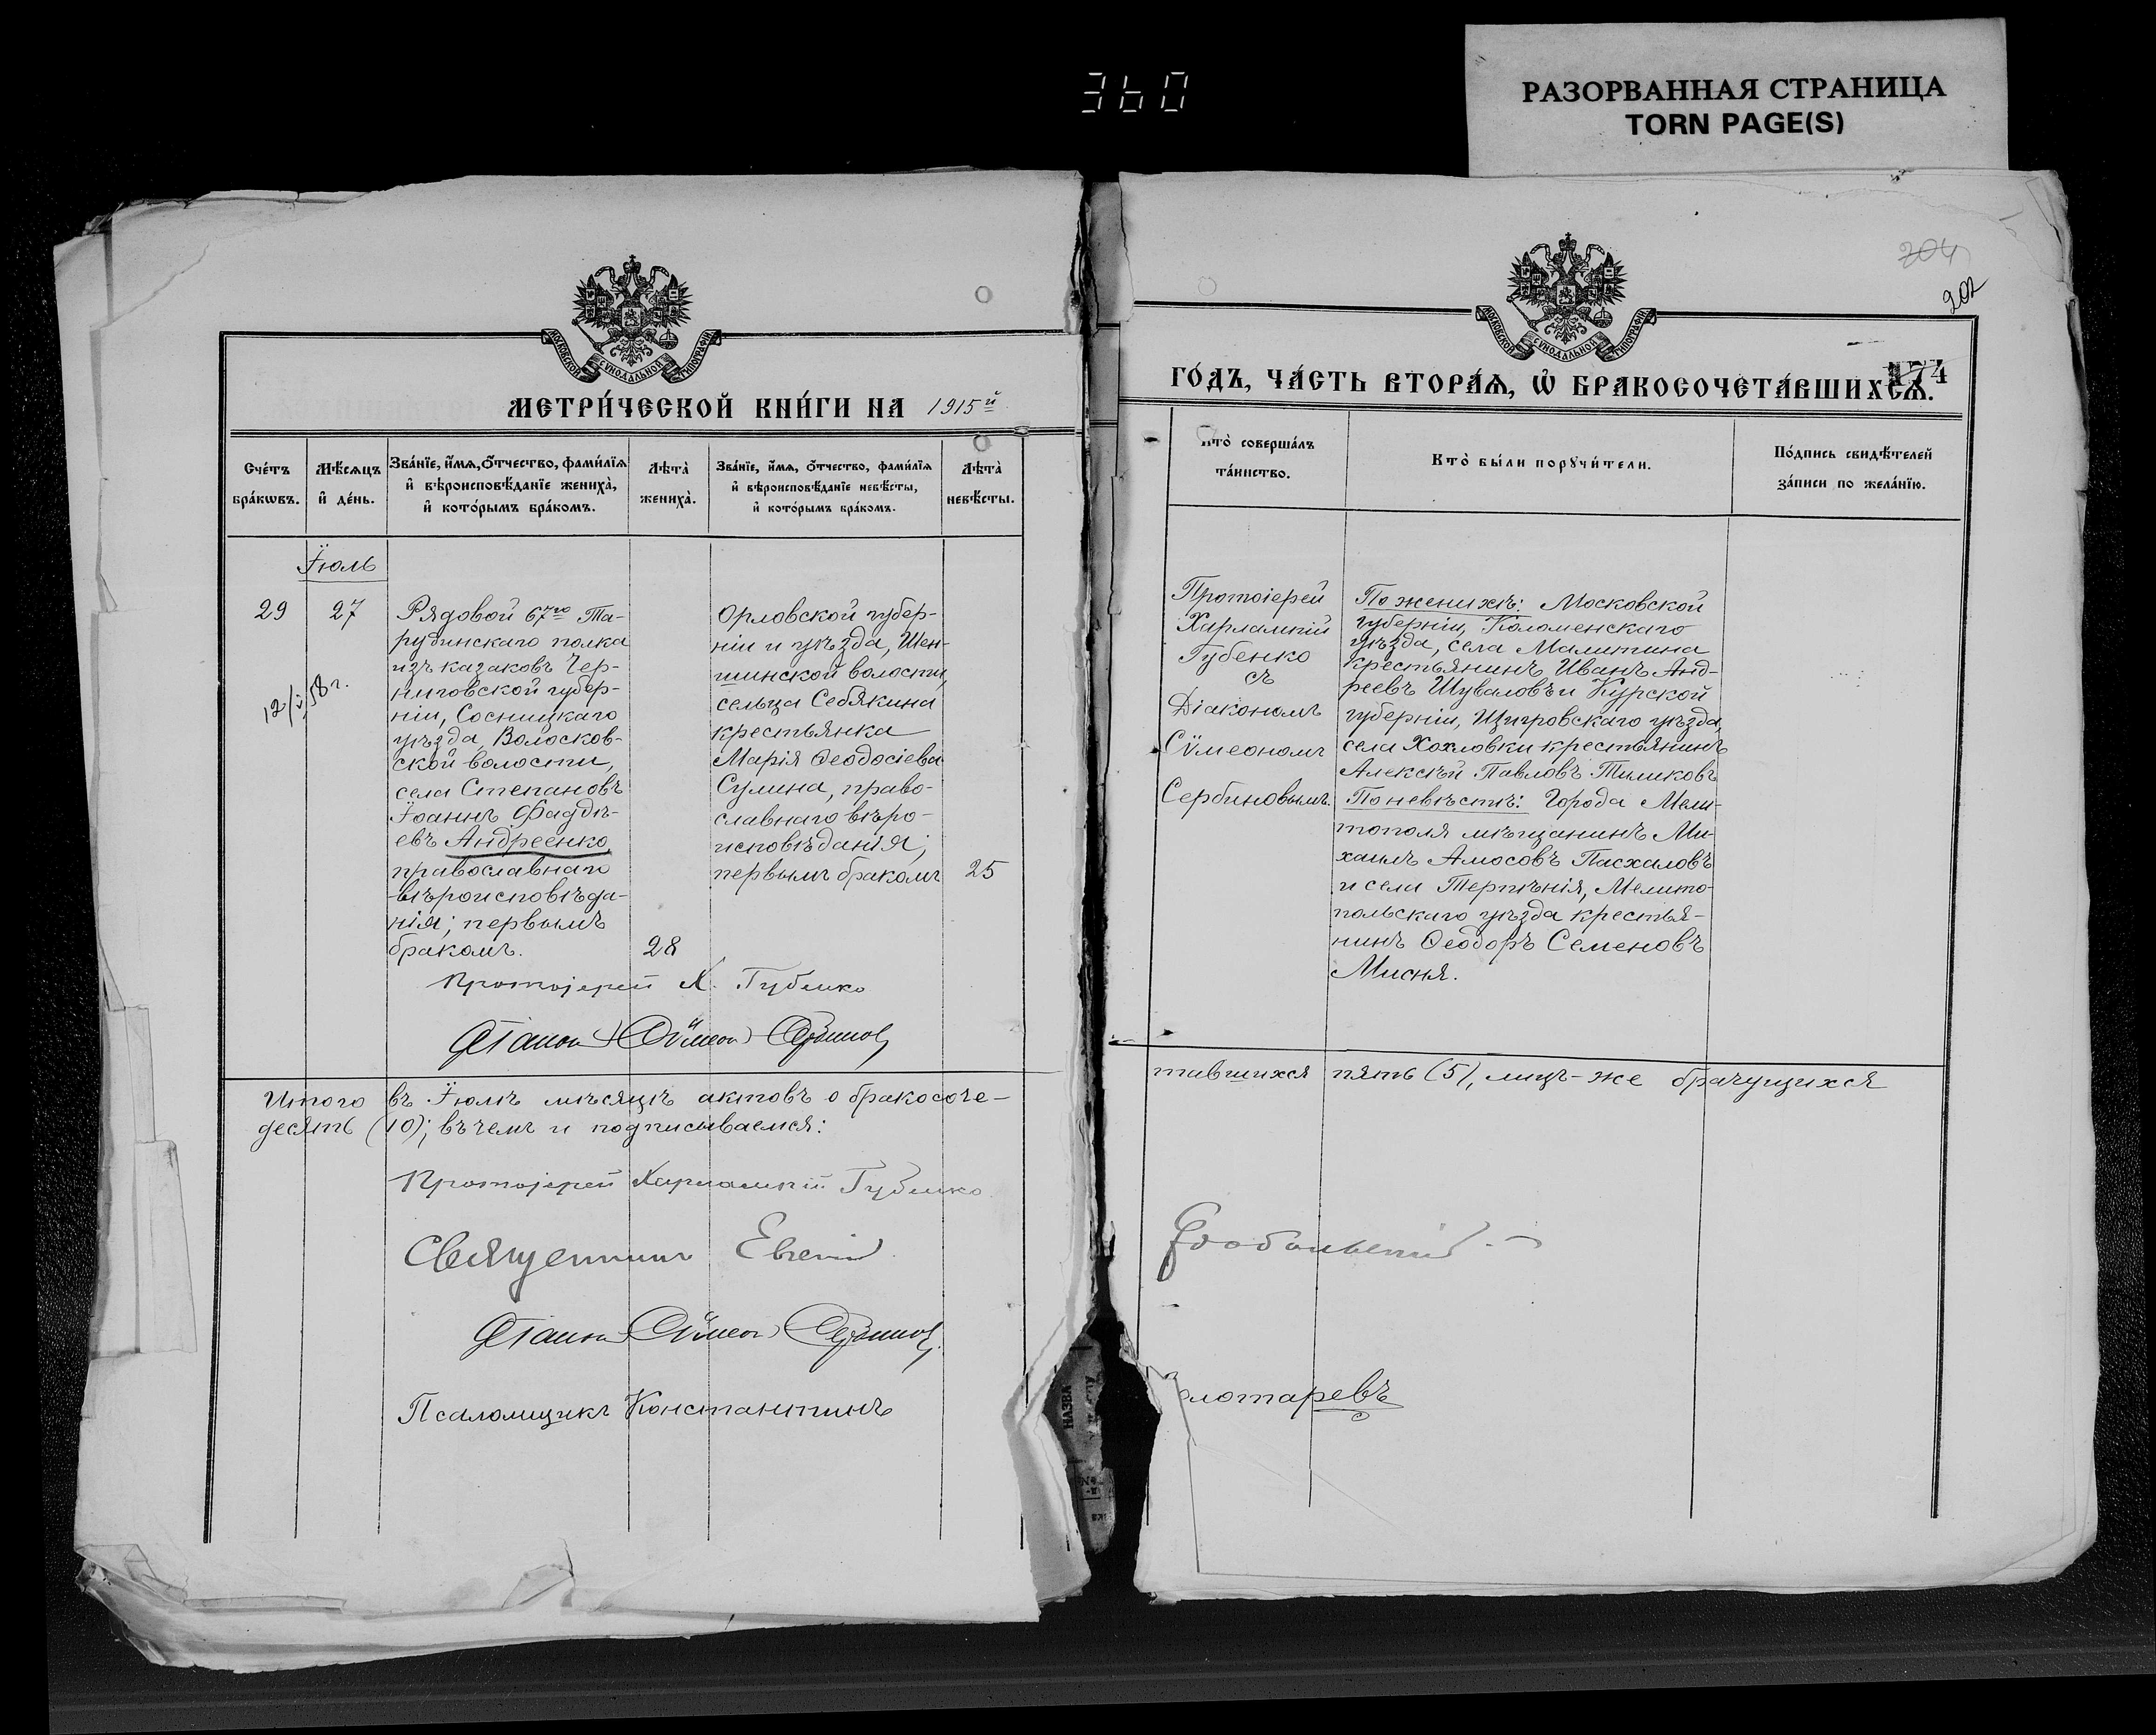 360
РАЗОРВАННАЯ СТРАНИЦА
TORN PAGE(S)
МОСКОВСКОЙ СѴНОДАЛЬНОЙ ТИПОГРАФІИ
МЕТРИ́ЧЕСКОЙ КНИ́ГИ НА 1915й
Сче́тъ бра́кωвъ.
Мѣ́сяцъ и҆ де́нь.
Зва́нїе, и҆́мѧ, ѻ҆́тчество, фами́лїѧ и҆ вѣроисповѣ́данїе жениха̀, и҆ кото́рымъ бра́комъ.
Лѣта̀ жениха̀.
Зва́нїе, и҆́мѧ, ѻ҆́тчество, фами́лїѧ и҆ вѣроисповѣ́данїе невѣ́сты, и҆ кото́рымъ бра́комъ.
Лѣта̀ невѣ́сты.
Їюль
29
27
12/V 58 г.
Рядовой 67го Та-
рутинскаго полка
изъ казаковъ Чер-
ниговской губер-
ніи, Сосницкаго
уѣзда, Волосков-
ской волости,
села Степановъ
Їоаннъ Фаддѣ-
евъ Андреенко,
православнаго
вѣроисповѣда-
нія; первымъ
бракомъ.
28
Орловской губер-
ніи и уѣзда, Шен-
шинской волости,
сельца Себякина
крестьянка
Марія Ѳеодосіева
Сулина, право-
славнаго вѣро-
исповѣданія;
первымъ бракомъ
25
Протоіерей Х. Губенко
Діаконъ Сѵмеонъ Сербиновъ
Итого въ Їюлѣ мѣсяцѣ актовъ о бракосоче-
десять (10); въ чемъ и подписываемся:
Протоіерей Харлампій Губенко
Священникъ Евгеній
Діаконъ Сѵмеонъ Сербиновъ
Псаломщикъ Константинъ
204
202
174
МОСКОВСКОЙ СѴНОДАЛЬНОЙ ТИПОГРАФІИ
ГО́ДЪ, ЧА́СТЬ ВТОРА́Ѧ, Ѡ҆ БРАКОСОЧЕТА́ВШИХСѦ.
Кто̀ соверша́лъ та́инство.
Кто̀ бы́ли порꙋчи́тели.
По́дпись свидѣ́телей за́писи по жела́нїю.
Протоіерей
Харлампій
Губенко
съ
Діакономъ
Сѵмеономъ
Сербиновымъ.
По женихѣ: Московской
губерніи, Коломенскаго
уѣзда, села Малитина
крестьянинъ Иванъ Анд-
реевъ Шуваловъ и Курской
губерніи, Щигровскаго уѣзда,
села Хохловки крестьянинъ
Алексѣй Павловъ Тиликовъ
По невѣстѣ: Города Мели-
тополя мѣщанинъ Ми-
хаилъ Амосовъ Пасхаловъ
и села Терпѣнія, Мелито-
польскаго уѣзда крестья-
нинъ Ѳеодоръ Семеновъ
Мисня.
тавшихся пять (5), лицъ-же брачущихся
лотаревъ